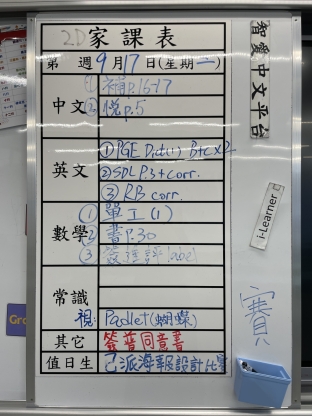 2D 家課表
第 週 9月17日(星期二)
中文 ① 補P.16-17
② 悦P.5
英文 ① PGE Dict(1) B+C×2
② SDL P.3+corr.
③ RB corr.
數學 ① 單工(1)
② 書P.30
③
常識
視: Padlet(蝴蝶)
其它 簽普同意書
值日生 已派海報設計比賽
智愛中文平台
i-Learner